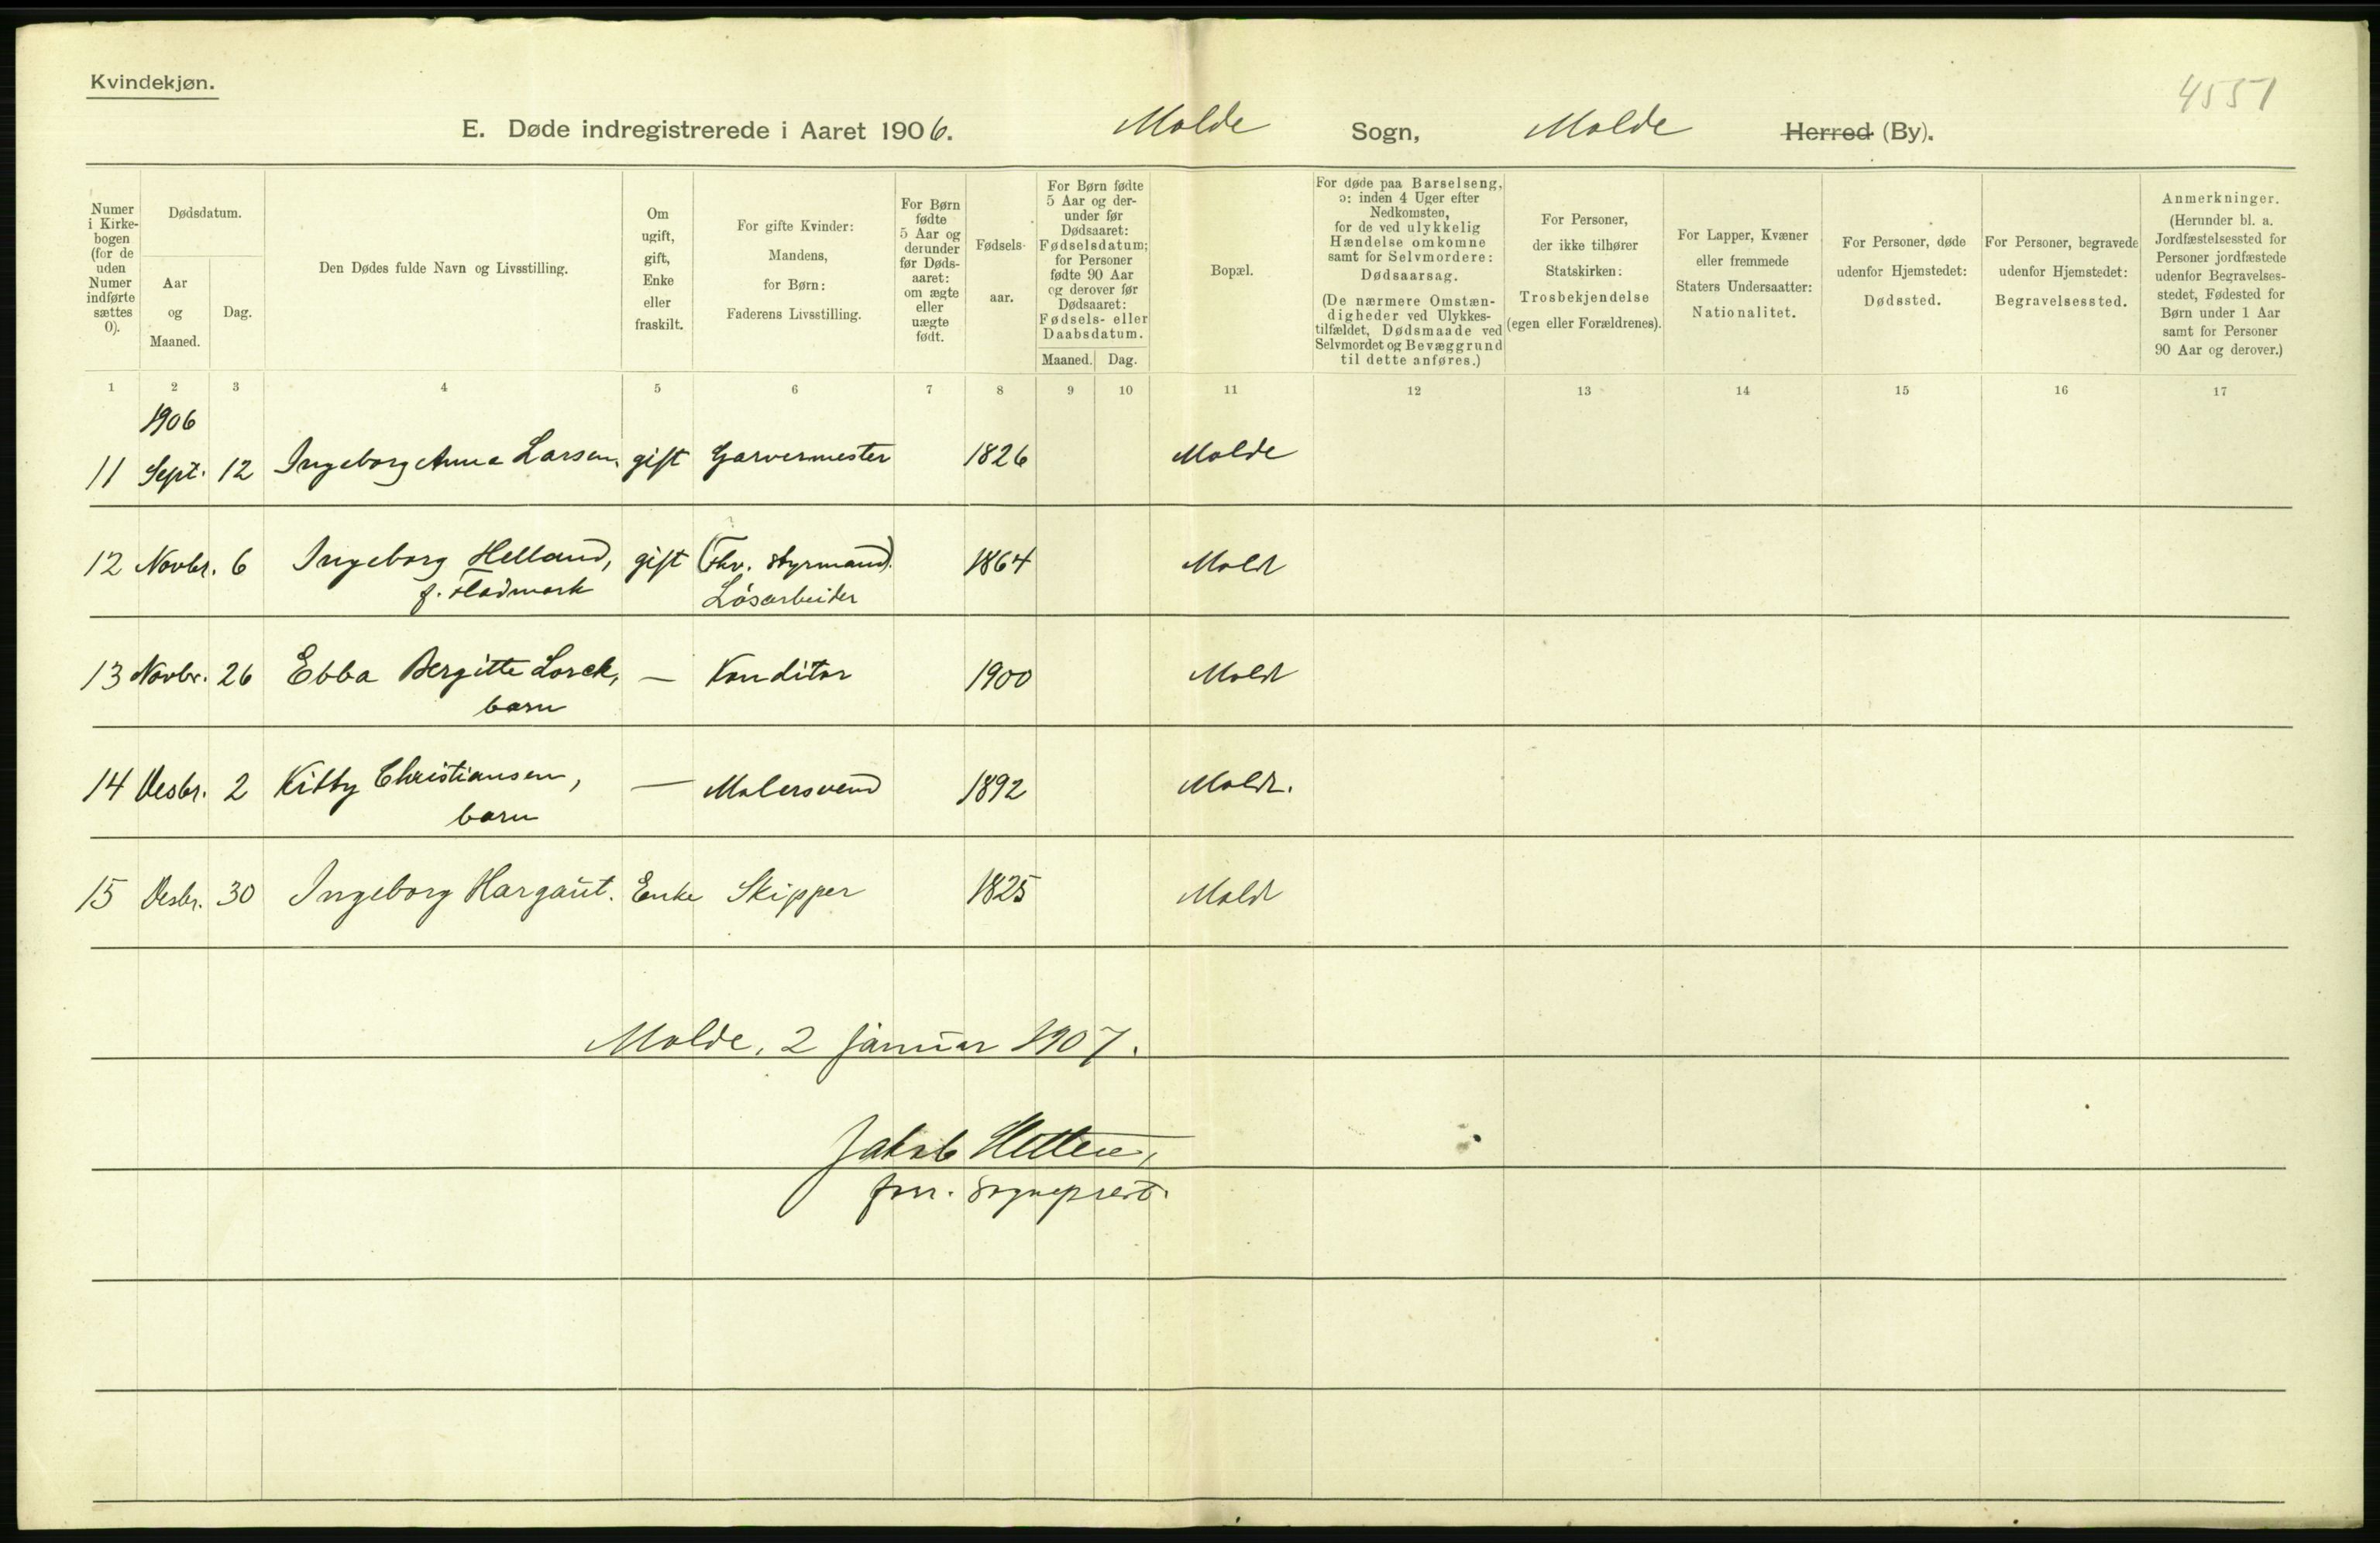 Kvindekjøn.
4551
E. Døde indregistrerede i Aaret 1906. Molde Sogn, Molde Herred (By).
Numer i Kirkebogen (for de uden Numer indførte sættes 0).
Dødsdatum.
Aar og Maaned.
Dag.
Den Dødes fulde Navn og Livsstilling.
Om ugift, gift, Enke eller fraskilt.
For gifte Kvinder: Mandens, for Børn: Faderens Livsstilling.
For Børn fødte 5 Aar og derunder før Dødsaaret: om ægte eller uægte født.
Fødselsaar.
For Børn fødte 5 Aar og derunder før Dødsaaret: Fødselsdatum; for Personer fødte 90 Aar og derover før Dødsaaret: Fødsels- eller Daabsdatum.
Maaned. Dag.
Bopæl.
For døde paa Barselseng, ɔ: inden 4 Uger efter Nedkomsten, for de ved ulykkelig Hændelse omkomne samt for Selvmordere: Dødsaarsag.
(De nærmere Omstændigheder ved Ulykkestilfældet, Dødsmaade ved Selvmordet og Bevæggrund til dette anføres.)
For Personer, der ikke tilhører Statskirken: Trosbekjendelse (egen eller Forældrenes).
For Lapper, Kvæner eller fremmede Staters Undersaatter: Nationalitet.
For Personer, døde udenfor Hjemstedet: Dødssted.
For Personer, begravede udenfor Hjemstedet: Begravelsessted.
Anmerkninger.
(Herunder bl. a. Jordfæstelsessted for Personer jordfæstede udenfor Begravelsesstedet, Fødested for Børn under 1 Aar samt for Personer 90 Aar og derover.)
1 2 3 4 5 6 7 8 9 10 11 12 13 14 15 16 17
1906
11 Sept. 12 Ingeborg Anna Larsen, gift Garvermester 1826 Molde
12 Novbr. 6 Ingeborg Helland, gift (Fhv. Styrmand). 1864 Molde
f. Hadmark Løsarbeider
13 Novbr. 26 Ebba Bergitte Lorck, — Konditor 1900 Molde
barn
14 Desbr. 2 Kitty Christiansen, — Malersvend 1892 Molde.
barn
15 Desbr. 30 Ingeborg Hargaut. Enke Skipper 1825 Molde
Molde, 2 januar 1907.
Jakob
sogneprest.